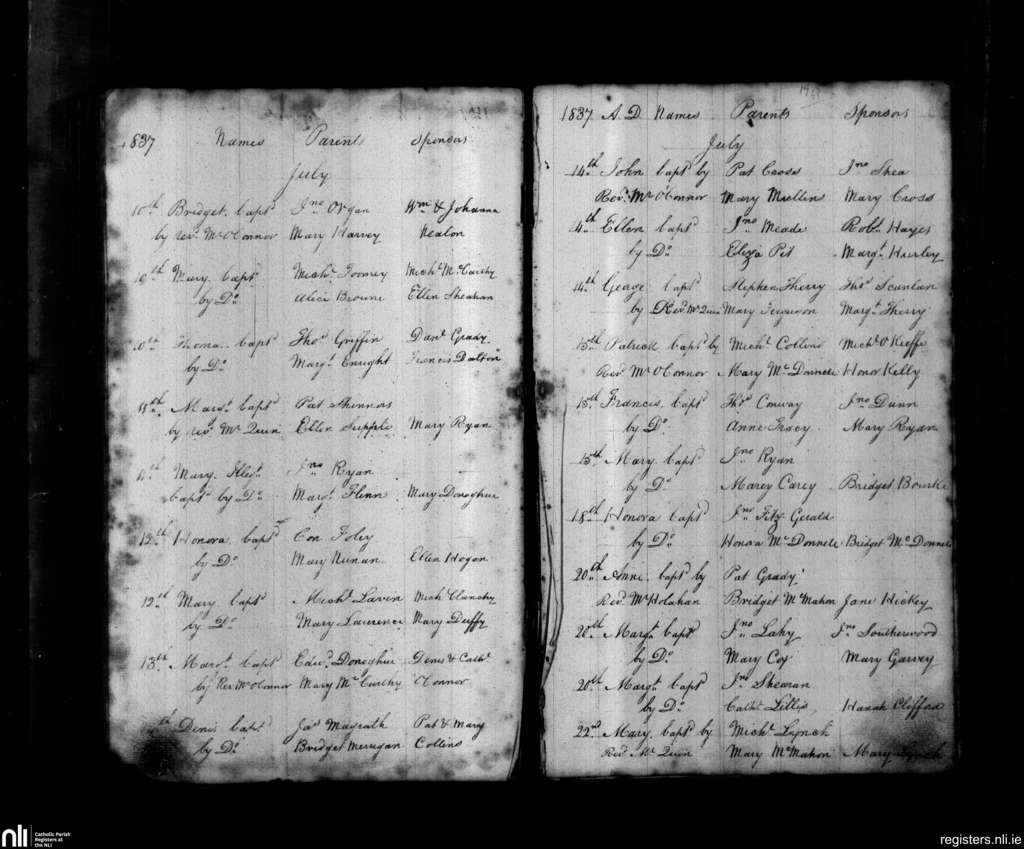 1837 Names Parents Sponsors
July
10th Bridget bapt Jno Regan Wm & Johanna
by revd Mr O'Connor Mary Harvey Nealon
10th Mary bapt Michl Toomey Michl McCarthy
by Do Alice Browne Ellen Sheahan
10th Thomas bapt Thos Griffin Danl Grady
by Do Margt Enright Francis Dalton
11th Margt bapt Pat Skinnors
by revd Mr Quin Ellen Supple Mary Ryan
11th Mary Jno Ryan
bapt by Do Margt Flinn Mary Donoghue
12th Honora bapt Con Foley
by Do Mary Nunan Ellen Hogan
12th Mary bapt Michl Lavin Mich Clanchy
by Do Mary Lawrence Mary Duffy
13th Margt bapt Edwd Donoghue Denis & Cathe
by Revd Mr O'Connor Mary McCarthy O'Connor
th Denis bapt Jas Magrath Pat & Mary
by Do Bridget Merrigan Collins
1837 A.D. Names Parents Sponsors
July
14th John bapt by Pat Cross Jno Shea
Revd Mr O'Connor Mary Mullins Mary Cross
14th Ellen bapt Jno Meade Robt Hayes
by Do Eliza Pit Margt Hurley
14th George bapt Stephen Sherry Thos Scanlan
by Revd Mr Quin Mary Ferguson Margt Sherry
15th Patrick bapt by Michl Collins Michl O'Kieffe
Revd Mr O'Connor Mary McDonnell Honor Kelly
15th Francis bapt Thos Conway Jno Dunn
by Do Anne Tracy Mary Ryan
15th Mary bapt Jno Ryan
by Do Marey Carey Bridget Bourke
18th Honora bapt Jno Fitz Gerald
by Do Honora McDonnell Bridget McDonnell
20th Anne bapt by Pat Grady
Revd Mr Holahan Bridget McMahon Jane Hickey
20th Margt bapt Jno Lahy Jno Southerwood
by Do Mary Coy Mary Garvey
20th Margt bapt Jno Shearan
by Do Cathe Lillis Hanah Clifford
22nd Mary bapt by Michl Lynch
Revd Mr Quin Mary McMahon Mary Lynch
nli Catholic Parish
Registers at
the NLI
registers.nli.ie